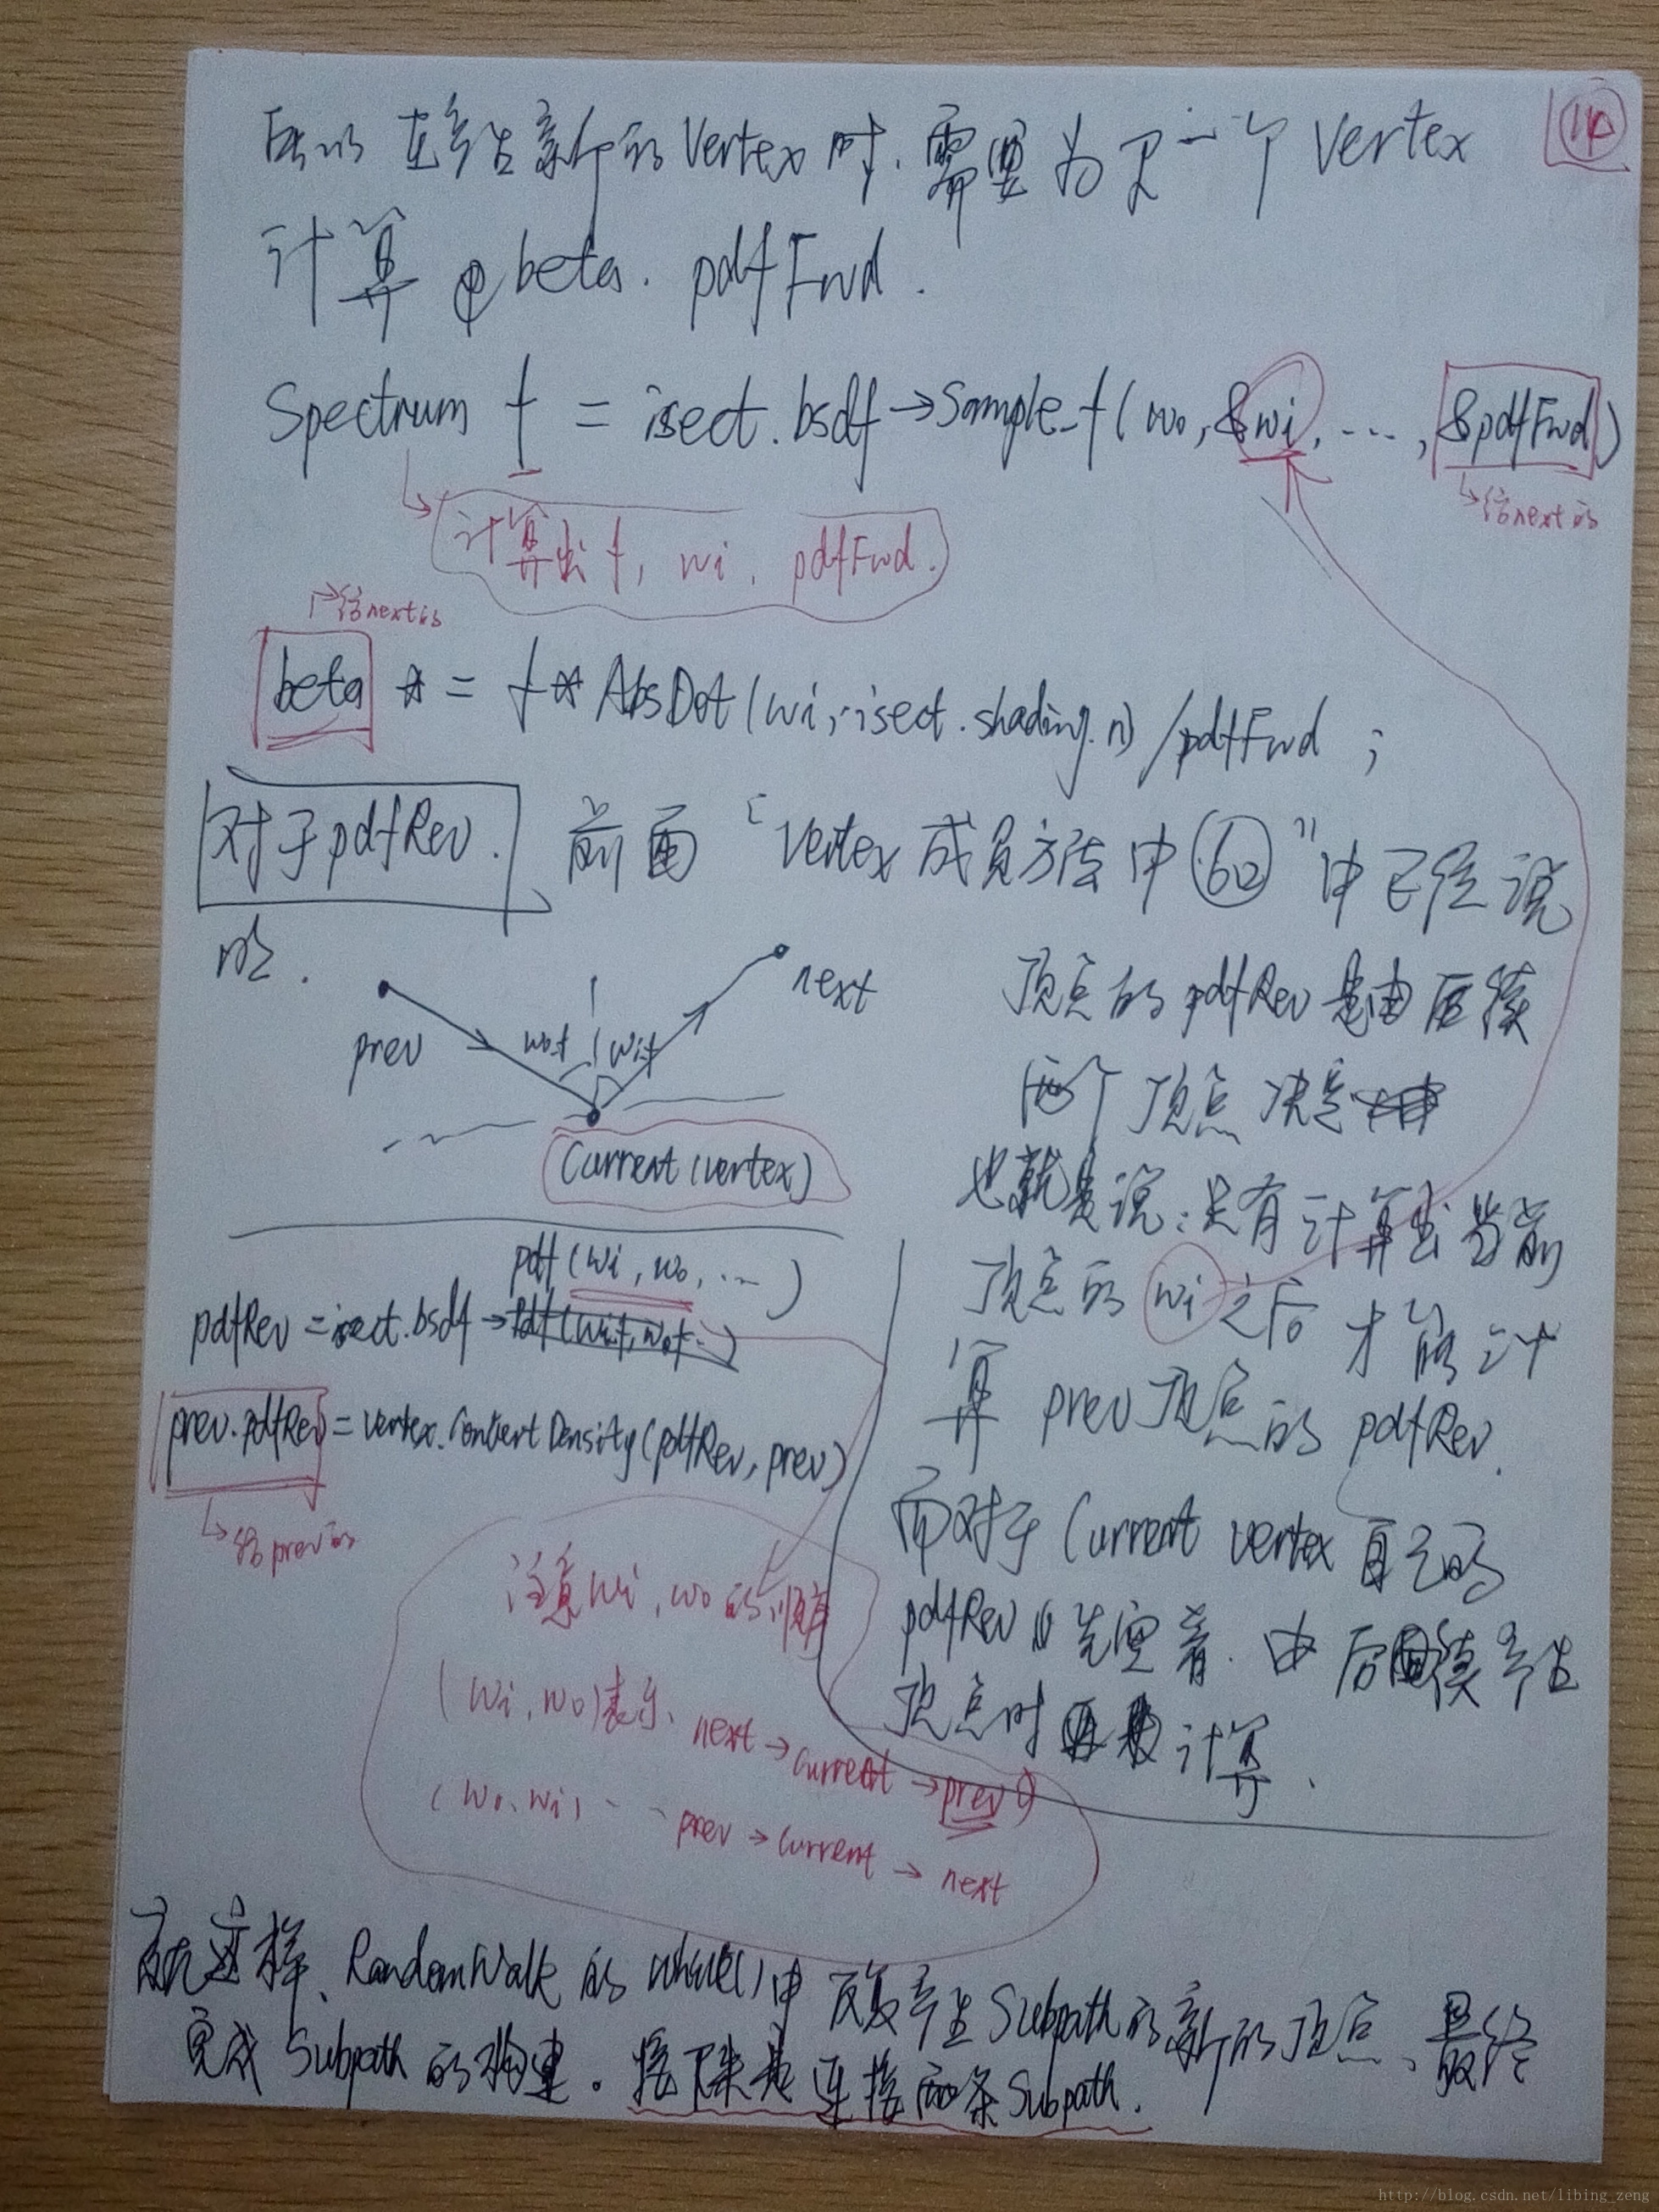 14
所以在产生新的Vertex时,需要为下一个Vertex
计算 beta. pdfFwd.
Spectrum f = isect.bsdf→Sample_f(wo,&wi,...,&pdfFwd)
给next的
计算出f, wi, pdfFwd.
给next的
beta *= f * AbsDot(wi, isect.shading.n) / pdfFwd ;
对于pdfRev. 前面「Vertex成员方法中62」中已经说
明.
prev
wo
wi
next
Current (vertex)
顶点的pdfRev是由后续
两个顶点决定
也就是说:只有计算出当前
顶点的wi之后才能计
算prev顶点的pdfRev.
而对于Current vertex自己的
pdfRev 先空着.由后续产生
顶点时 计算.
pdf(wi, wo, ...)
pdfRev = isect.bsdf→
prev.pdfRev = vertex.ConvertDensity(pdfRev, prev)
给prev的
注意wi, wo的顺序
(wi, wo)表示 next→current→prev
(wo, wi) prev→current→next
就这样、RandomWalk的while()中反复产生Subpath的新的顶点、最终
完成Subpath的构建。接下来是连接两条Subpath.
http://blog.csdn.net/libing_zeng